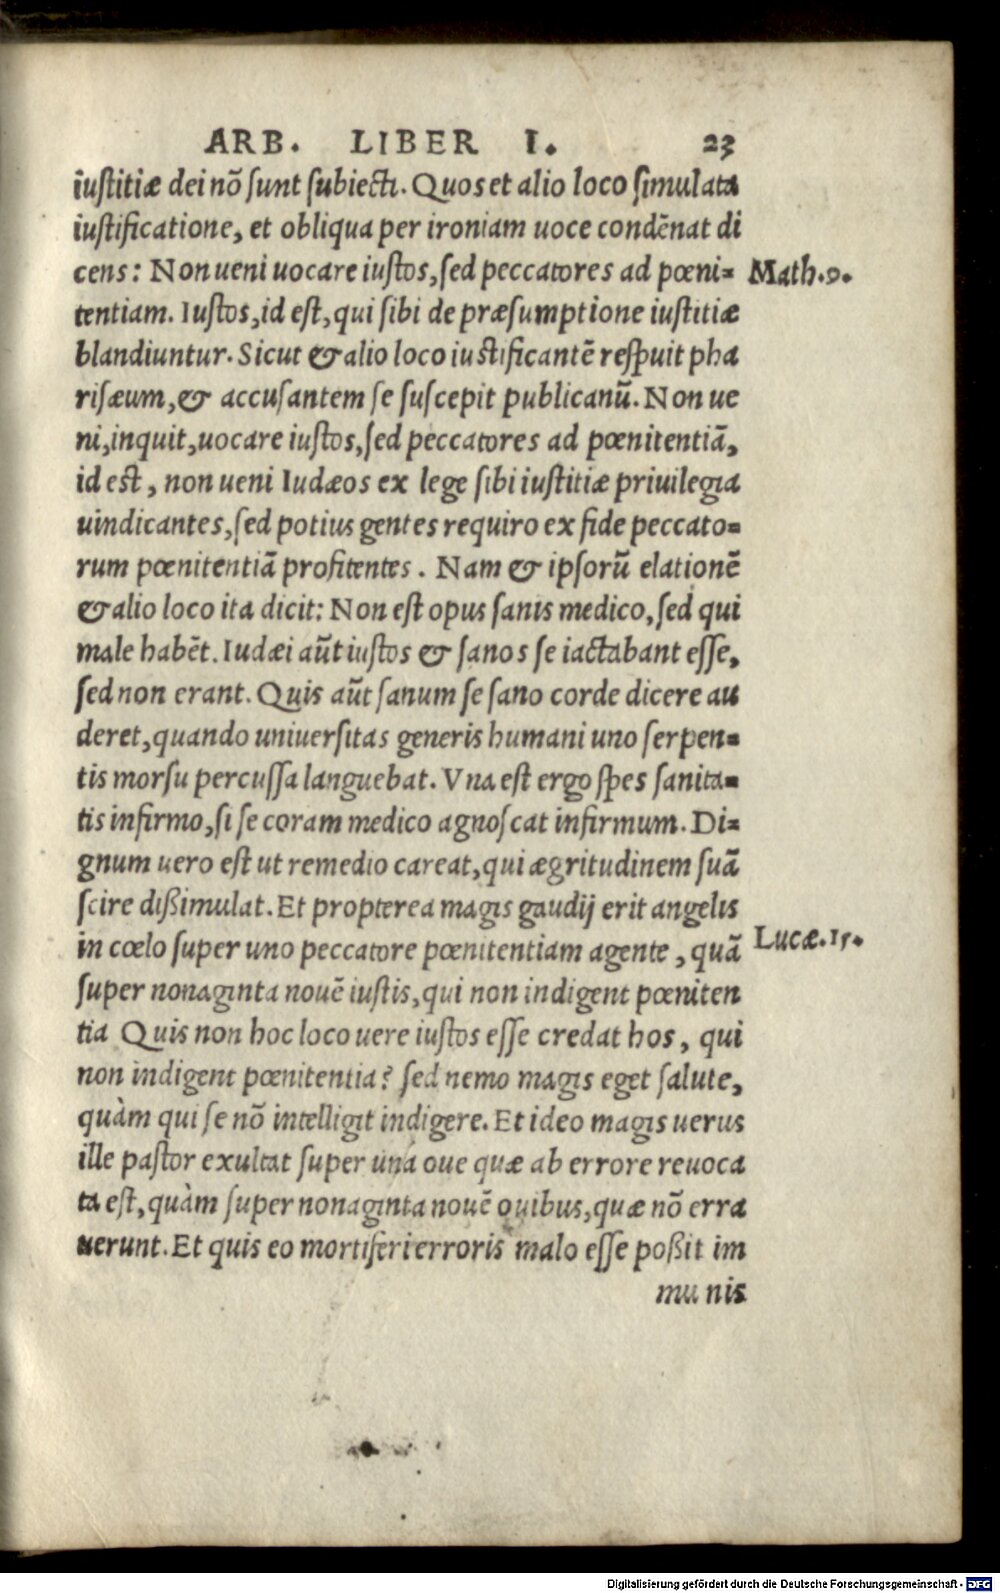 ARB. LIBER I. 23
iustitiæ dei nõ sunt subiecti. Quos et alio loco simulata
iustificatione, et obliqua per ironiam uoce condẽnat di
cens: Non ueni uocare iustos, sed peccatores ad pœni= Math.9.
tentiam. Iustos, id est, qui sibi de præsumptione iustitiæ
blandiuntur. Sicut & alio loco iustificantẽ respuit pha
risæum, & accusantem se suscepit publicanũ. Non ue
ni, inquit, uocare iustos, sed peccatores ad pœnitentiã,
id est, non ueni Iudæos ex lege sibi iustitiæ priuilegia
uindicantes, sed potius gentes requiro ex fide peccato=
rum pœnitentiã profitentes. Nam & ipsorũ elationẽ
& alio loco ita dicit: Non est opus sanis medico, sed qui
male habẽt. Iudæi aũt iustos & sanos se iactabant esse,
sed non erant. Quis aũt sanum se sano corde dicere au
deret, quando uniuersitas generis humani uno serpen=
tis morsu percussa languebat. Vna est ergo spes sanita=
tis infirmo, si se coram medico agnoscat infirmum. Di=
gnum uero est ut remedio careat, qui ægritudinem suã
scire dißimulat. Et propterea magis gaudij erit angelis
in cœlo super uno peccatore pœnitentiam agente, quã Lucæ.15.
super nonaginta nouẽ iustis, qui non indigent pœniten
tia Quis non hoc loco uere iustos esse credat hos, qui
non indigent pœnitentia? sed nemo magis eget salute,
quàm qui se nõ intelligit indigere. Et ideo magis uerus
ille pastor exultat super una oue quæ ab errore reuoca
ta est, quàm super nonaginta nouẽ ouibus, quæ nõ erra
uerunt. Et quis eo mortiferi erroris malo esse poßit im
munis
Digitalisierung gefördert durch die Deutsche Forschungsgemeinschaft - DFG